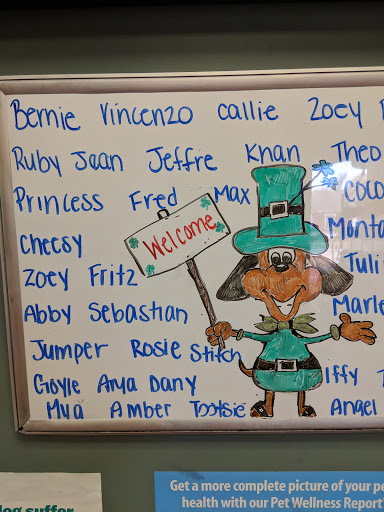 Bernie Vincenzo Callie Zoey
Ruby Jean Jeffre Khan Theo
Princess Fred Max COCO
Welcome
Cheesy Monta
Zoey Fritz Tuli
Abby Sebastian Marle
Jumper Rosie Stitch
Goyle Arya Dany Iffy
Mya Amber Tootsie Angel
dog suffer
Get a more complete picture of your pe
health with our Pet Wellness Report